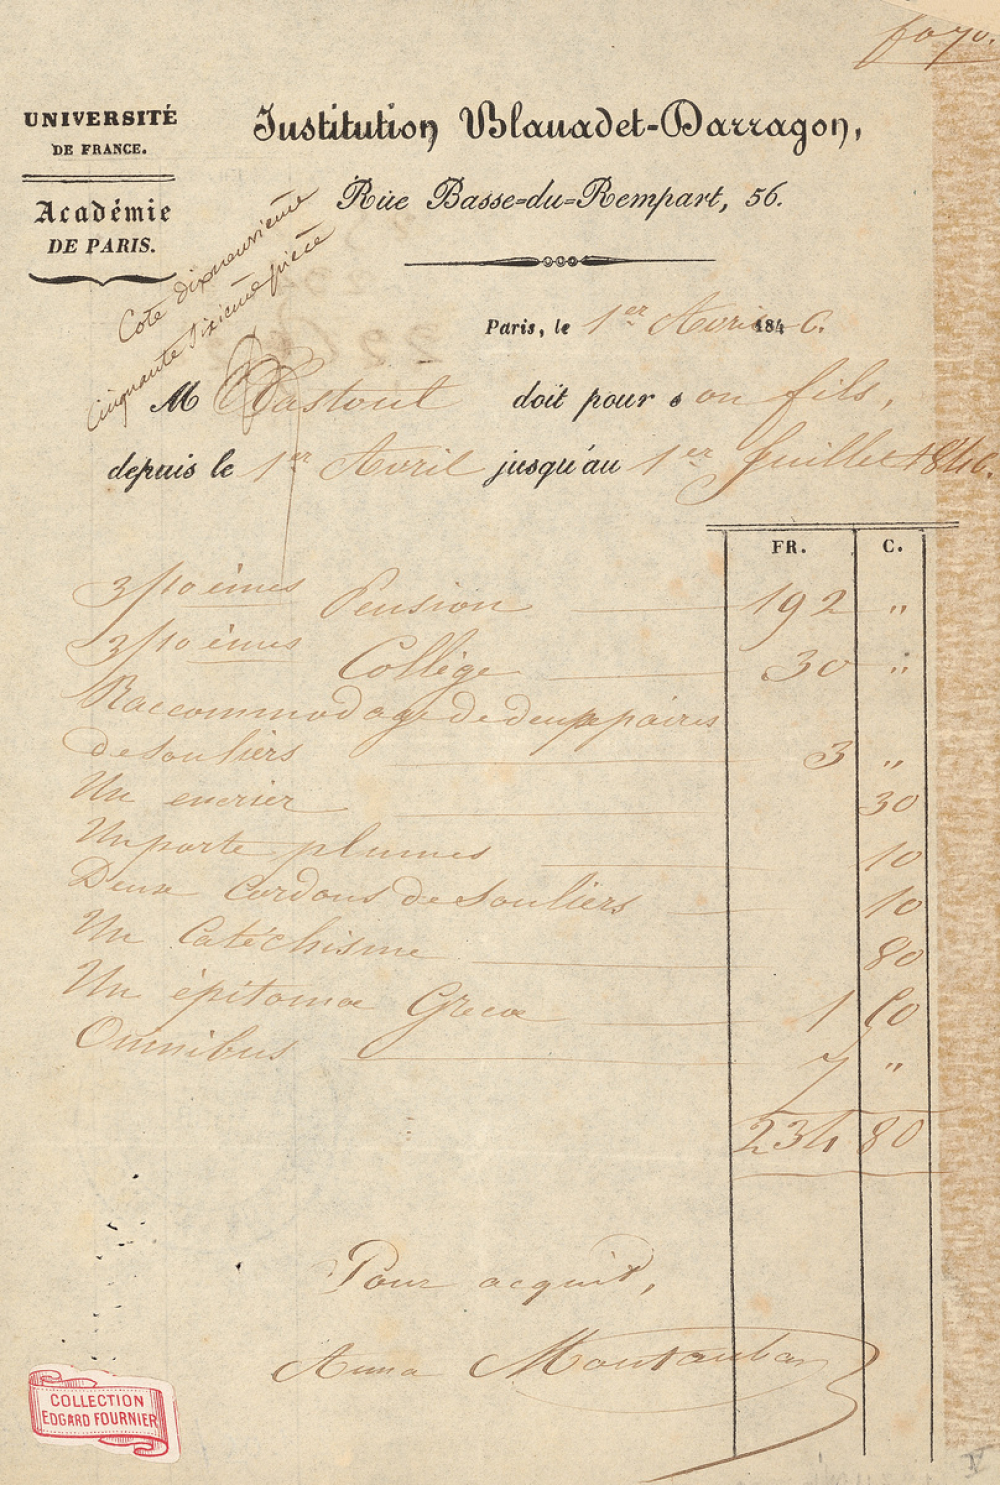 fo 70.
UNIVERSITÉ
DE FRANCE.
Académie
DE PARIS.
Institution Blanadet-Darragon,
Rue Basse-du-Rempart, 56.
Cote dixneuvieme
Cinquante Sixieme pièce
Paris, le 1er Avril 1846.
M Pastoul doit pour son fils,
depuis le 1er Avril jusqu'au 1er Juillet 1846.
FR. C.
3/10 èmes Pension 192 "
3/10 èmes Collège 30 "
Raccommodage de deux paires
de souliers 3 "
Un encrier 30
Un porte plumes 10
Deux Cordons de souliers 10
Un Catéchisme 80
Un épitomæ Grecæ 1 50
Omnibus 7 "
234 80
Pour acquit,
Anna Montauban
COLLECTION
EDGARD FOURNIER